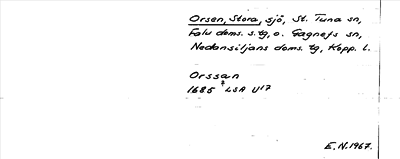 Orsen, Stora, sjö, St. Tuna sn,
Falu doms. s. tg, o. Gagnefs sn,
Nedansiljans doms. tg, Kopp. l.
Orssan
1685 LSA U17
E.N. 1967.